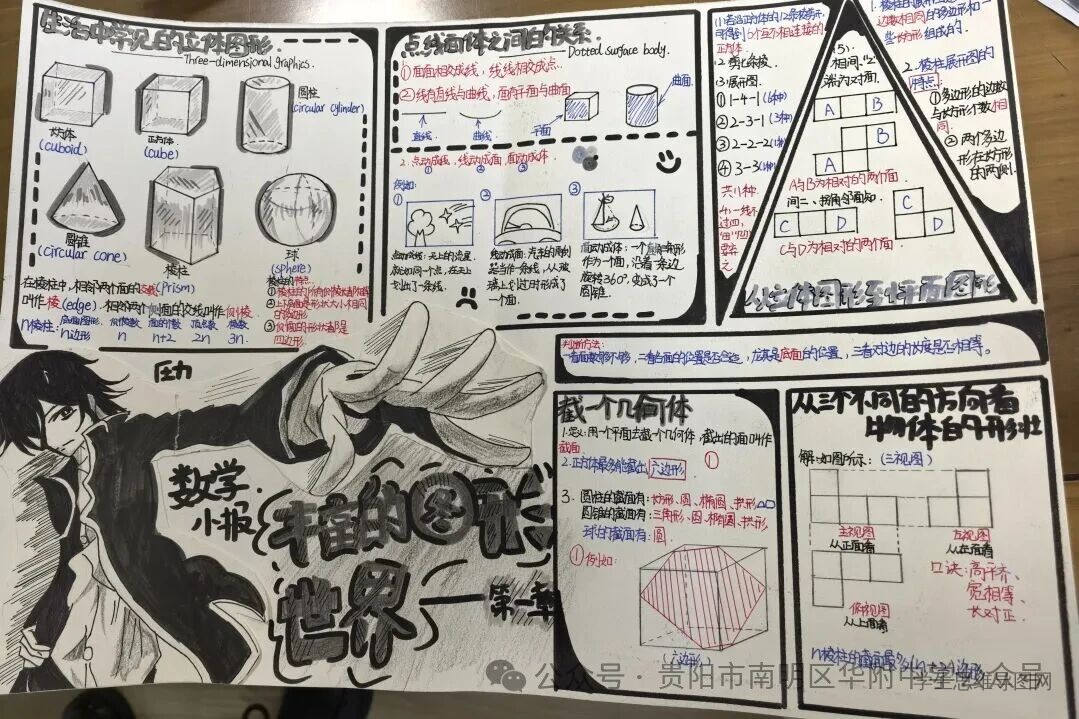 生活中常见的立体图形
Three-dimensional graphics.
长方体
(cuboid)
正方体
(cube)
圆柱
(circular cylinder)
圆锥
(circular cone)
棱柱
(prism)
球
(sphere)
在棱柱中,相邻两个面的交线
叫作棱(edge).相邻两个侧面的交线叫作侧棱
n棱柱:
底面图形
n边形
侧棱数
n
面的个数
n+2
顶点数
2n
棱数
3n.
棱柱的特点:
①棱柱的所有侧棱长都相等
②上下底面是形状大小相同的多边形
③侧面的形状都是
四边形.
点线面体之间的关系
Dotted surface body.
①面面相交成线,线线相交成点.
②线有直线与曲线,面有平面与曲面
直线
曲线
平面
曲面
2.点动成线,线动成面,面动成体.
例如:
①
②
③
点动成线:天上的流星
就如同一个点,在天上
划出了一条线.
线动成面:汽车的雨刷
器当作一条线,从玻
璃上划过时形成了
一个面.
面动成体:一个直角三角形
作为一个面,沿着一条边
旋转360°,变成了一个
圆锥.
(2)剪七条棱.
(3)展开图.
①1-4-1(6种)
②2-3-1(3种)
③2-2-2(1种)
④3-3(1种)
共11种.
(5)
相间、"Z"
端为对面.
A
B
B
A
A与B为相对的两个面.
间二、拐角邻面知.
C
D
C
D
C与D为相对的两个面.
从立体图形到平面图形
边数相同的多边形和一
些长方形组成的.
2.棱柱展开图的
特点:
①多边形的边数
与长方形个数相
同.
②两个多边
形在长方形
的两侧.
判断方法:
一看面数够不够,二看各面的位置是否合适,尤其是底面的位置,三看对边的长度是否相等。
截一个几何体
1.定义:用一个平面去截一个几何体,截出的面叫作
截面.
2.正方体最多能截出六边形
①
3.圆柱的截面有:长方形、圆、椭圆、拱形
圆锥的截面有:三角形、圆、椭圆、拱形.
球的截面有:圆.
①例如:
(六边形)
从三个不同的方向看
物体的形状
解:如图所示:(三视图)
主视图
从正面看
左视图
从左面看
俯视图
从上面看
口诀:高平齐、
宽相等、
长对正.
压力
数学
小报
丰富的图形
世界——第一章
公众号·贵阳市南明区华附中学
学生思维导图网